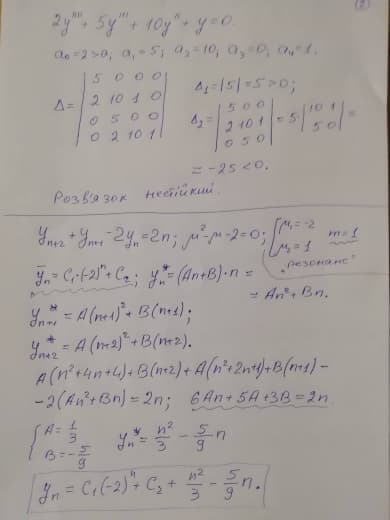 ②
2y'''' + 5y''' + 10y'' + y = 0.
a₀=2>0, a₁=5; a₂=10, a₃=0, a₄=1.
Δ = | 5 0 0 0 |
| 2 10 1 0 |
| 0 5 0 0 |
| 0 2 10 1 |
Δ₁ = |5| = 5 > 0;
Δ₂ = | 5 0 0 | = 5·| 10 1 | =
| 2 10 1 | | 5 0 |
| 0 5 0 |
= -25 < 0.
Розв'язок нестійкий.
yₙ₊₂ + yₙ₊₁ - 2yₙ = 2n; μ² - μ - 2 = 0; { μ₁ = -2 m = 1
μ₂ = 1
„резонанс"
ȳₙ = C₁·(-2)ⁿ + C₂; yₙ* = (An+B)·n =
= An² + Bn.
yₙ₊₁* = A(n+1)² + B(n+1);
yₙ₊₂* = A(n+2)² + B(n+2).
A(n²+4n+4) + B(n+2) + A(n²+2n+1) + B(n+1) -
-2(An²+Bn) = 2n; 6An + 5A + 3B = 2n
{ A = 1/3
B = -5/9
yₙ* = n²/3 - 5/9 n
yₙ = C₁(-2)ⁿ + C₂ + n²/3 - 5/9 n.